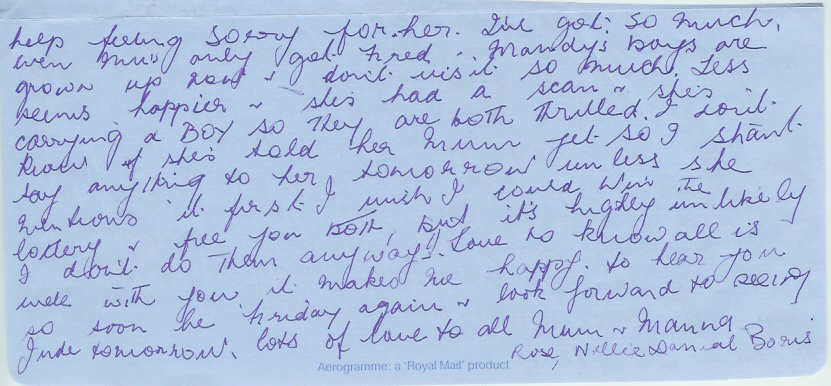 help feeling sorry for her. I've got so much,
even Mum's only got Fred. Mandy's boys are
grown up now & don't visit so much. Jess
seems happier & she's had a scan & she's
carrying a BOY so they are both thrilled. I don't
know if she's told her Mum yet so I shan't
say anything to her tomorrow unless she
mentions it first. I wish I could win the
lottery & free you both, but it's highly unlikely
I don't do them anyway! Love to know all is
well with you it makes me happy. to hear you
so soon be Friday again & look forward to seeing
Jude tomorrow. lots of love to all Mum & Manna
Rose, Nellie Daniel Boris
Aerogramme: a 'Royal Mail' product